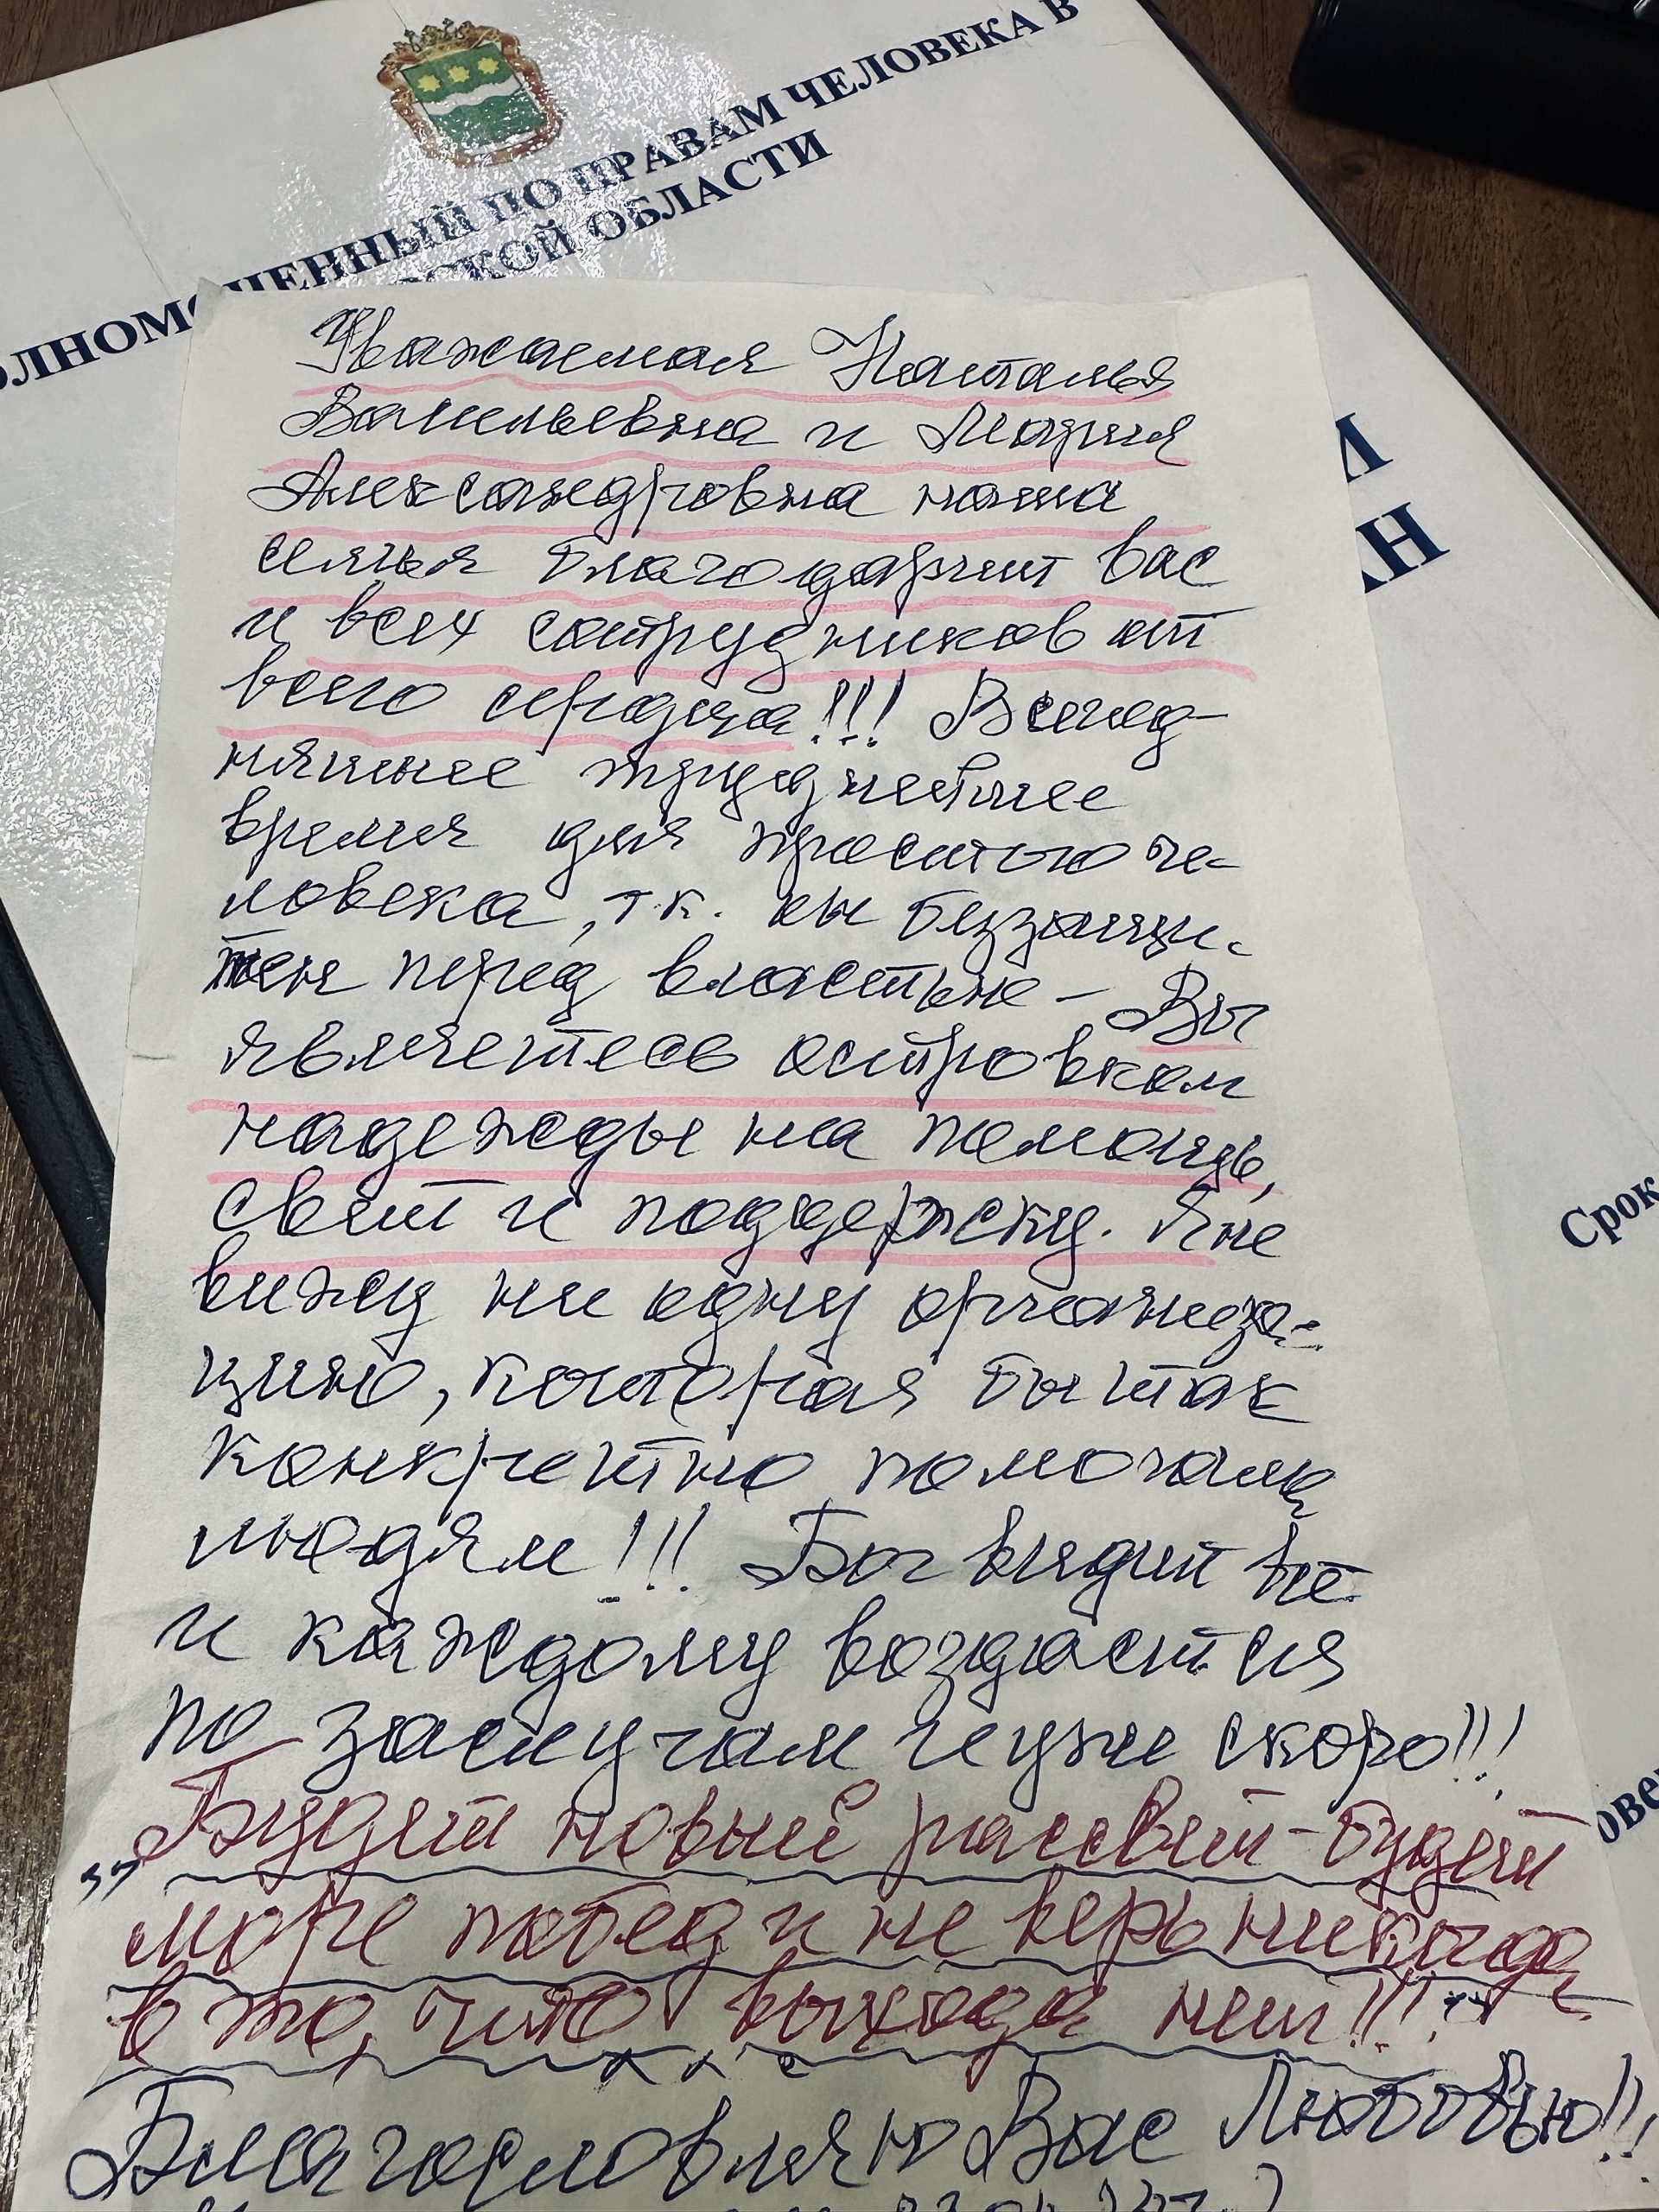 ОЛНОМОЧЕННЫЙ ПО ПРАВАМ ЧЕЛОВЕКА В
СКОЙ ОБЛАСТИ
И
АН
Срок
ове
Уважаемая Наталья
Васильевна и Мария
Александровна наша
семья благодарит вас
и всех сотрудников от
всего сердца!!! В сегод-
няшнее труднейшее
время для простого че-
ловека, т.к. он беззащи-
тен перед властью - Вы
являетесь островком
надежды на помощь,
свет и поддержку. Я не
вижу ни одну организа-
цию, которая бы так
конкретно помогала
людям!!! Бог видит всё
и каждому воздастся
по заслугам и уже скоро!!!
„Будет новый рассвет - будет
море побед и не верь никогда
в то, что выхода нет!!!"
Благословляю Вас Любовью!!!